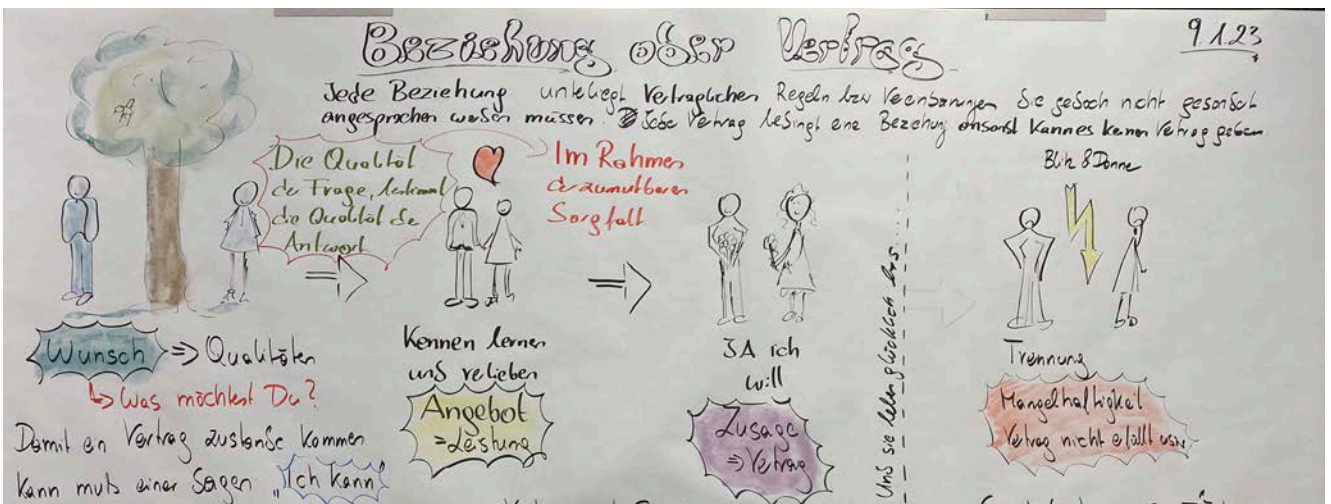 Beziehung oder Vertrag
9.1.23
Jede Beziehung unterliegt Vertraglichen Regeln bzw Vereinbarungen die jedoch nicht gesondert
angesprochen werden müssen. Jede Vertrag bedingt eine Beziehung ansonst kann es kenen Vertrag geben
Die Qualität
der Frage, bestimmt
die Qualität der
Antwort
Im Rahmen
der zumutbaren
Sorgfalt
Blitz & Donner
Wunsch => Qualitäten
Was möchtest Du?
Damit ein Vertrag zustande kommen
kann muß einer Sagen "Ich kann"
Kennen lernen
und verlieben
Angebot
=Leistung
JA ich
will
Zusage
=> Vertrag
Und sie leben glücklich bis...
Trennung
Mangelhaftigkeit
Vertrag nicht erfüllt usw